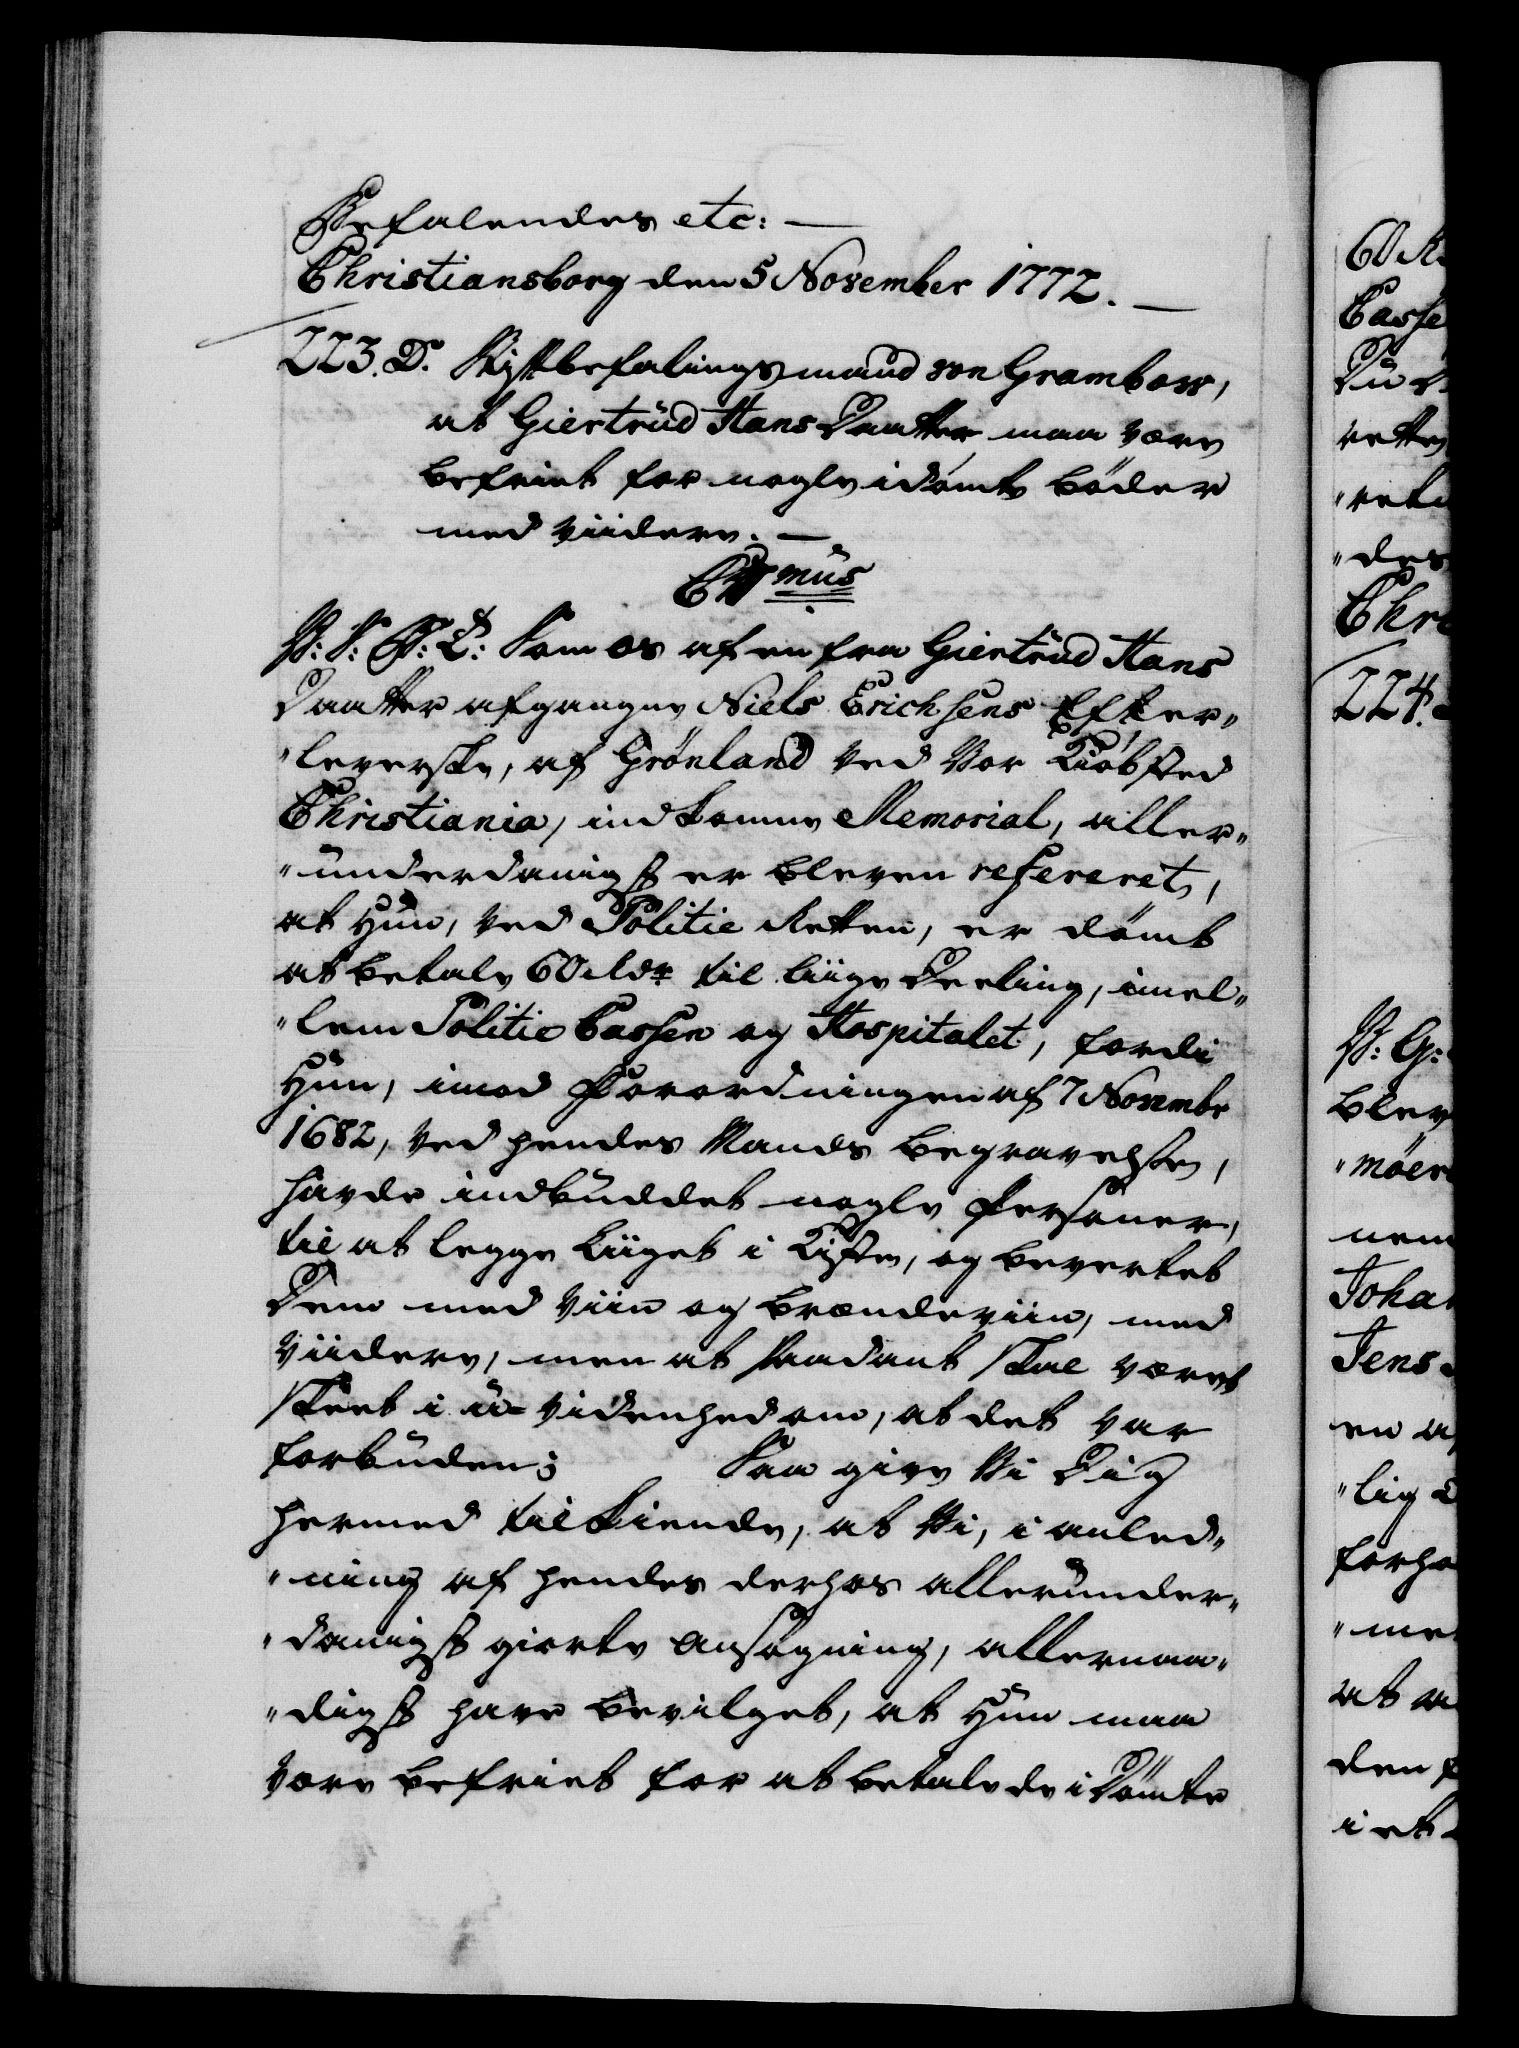 Befalendes etc: —
Christiansborg den 5 November 1772. —
223. D. Stiftbefalingsmand von Grambow,
at Giertrüd Hans Daatter maa være
befriet for nogle idömte böder
med viidere. —
C7mus
V: S: G: T: Som os af en fra Giertrüd Hans
Daatter afgangne Niels Erichsens Efter„
„leverske, af Grönland ved Vor Kiöbsted
Christiania, indkomne Memorial, aller„
„ünderdanigst er bleven refereret,
at Hün, ved Politie Retten, er dömt
at betale 60 Rdr til liige Deeling, imel„
„lem Politie Cassen og Hospitalet, fordi
Hün, imod Forordningen af 7 Novembr
1682, ved hendes Mands Begravelse,
havde indbüddet nogle Personer,
til at legge Liiget i Kisten, og bevertet
Dem med Viin og Brændeviin, med
viidere, men at saadant skal været
skeet i ü-videnhed om, at det var
forbüden; Saa give Vi Dig
hermed tilkiende, at Vi, i anled„
„ning af hendes derhos alleründer„
„danigst giorte Ansögning, allernaa„
„digst have bevilget, at Hün maa
være befriet for at betale de i Dömte
60 R
Casse
Du
rette
„ret
„des
Chri
224.
V: G:
blev
„möer
nem
Johan
Jens
en a
„lig
forho
„me
at
den
i et